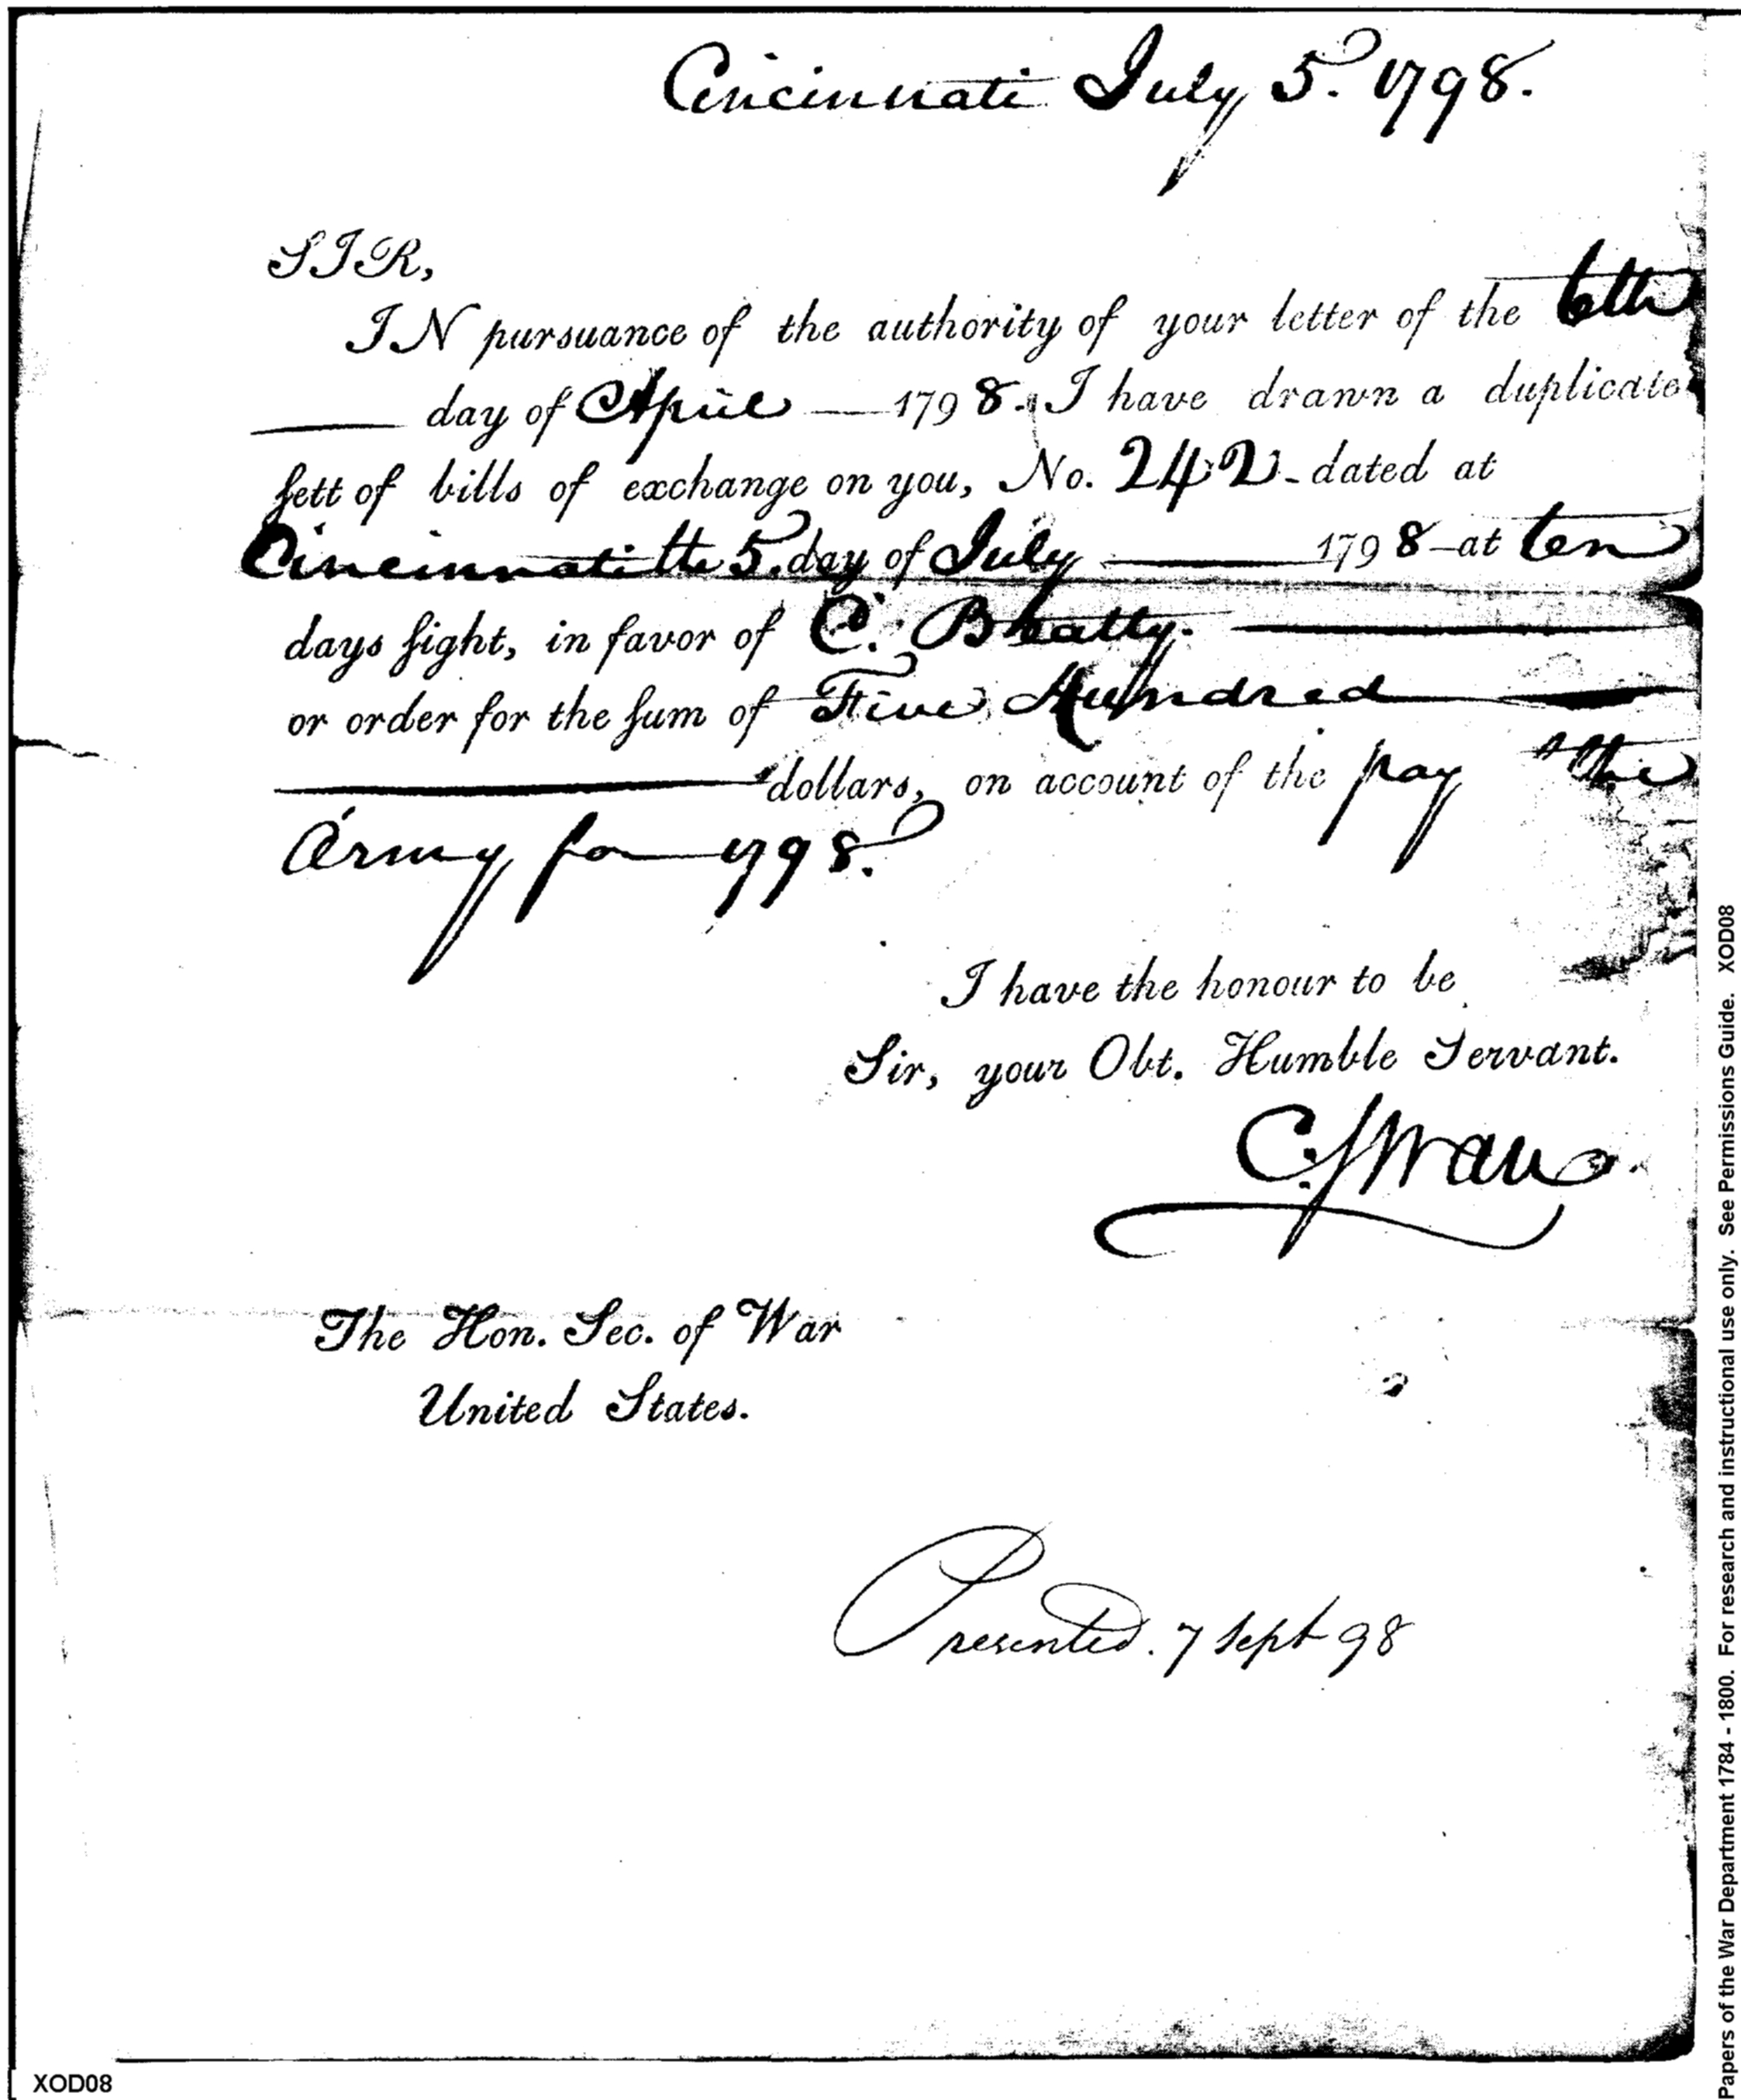 Cincinnati July 5. 1798.
SIR,
IN pursuance of the authority of your letter of the 6th
day of April 1798. I have drawn a duplicate
sett of bills of exchange on you, No. 242 - dated at
Cincinnati the 5. day of July 1798 - at ten
days sight, in favor of C. Beatty.
or order for the sum of Five Hundred
dollars, on account of the pay the
Army for 1798.
I have the honour to be
Sir, your Obt. Humble Servant.
C. Swan
The Hon. Sec. of War
United States.
Presented. 7 Sept 98
XOD08
Papers of the War Department 1784 - 1800. For research and instructional use only. See Permissions Guide. XOD08